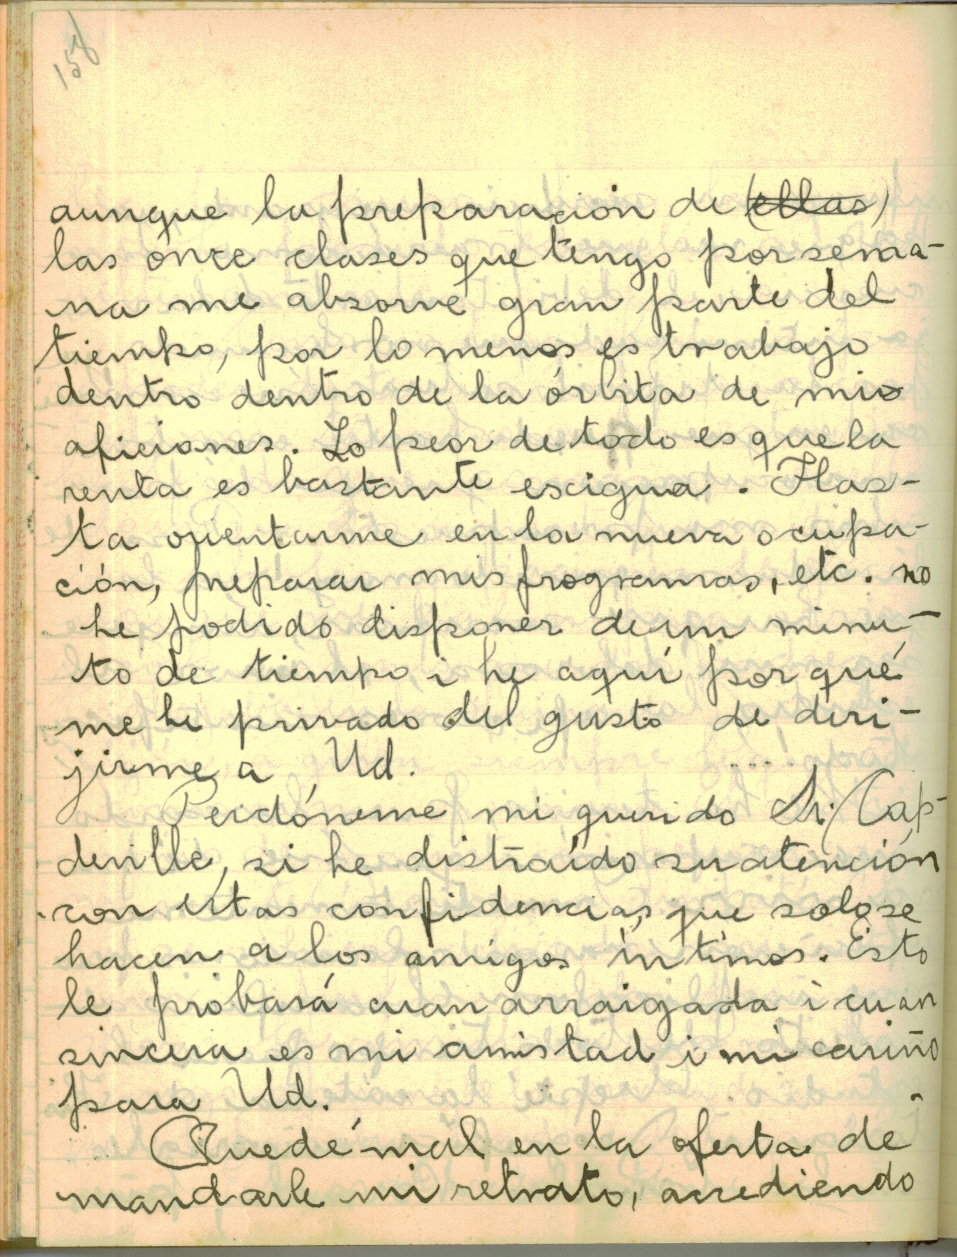 156
aunque la preparación de (ellas)
las once clases que tengo por sema-
na me absorve gran parte del
tiempo, por lo menos es trabajo
dentro dentro de la órbita de mis
aficiones. Lo peor de todo es que la
renta es bastante escigua. Has-
ta orientarme en la nueva ocupa-
ción, preparar mis programas, etc. no
he podido disponer de un minu-
to de tiempo i he aquí por qué
me he privado del gusto de diri-
jirme a Ud.
Perdóneme mi querido Sr. Cap-
deville, si he distraído su atención
con éstas confidencias, que solo se
hacen a los amigos íntimos. Esto
le probará cuan arraigada i cuan
sincera es mi amistad i mi cariño
para Ud.
Quedé mal en la oferta de
mandarle mi retrato, accediendo